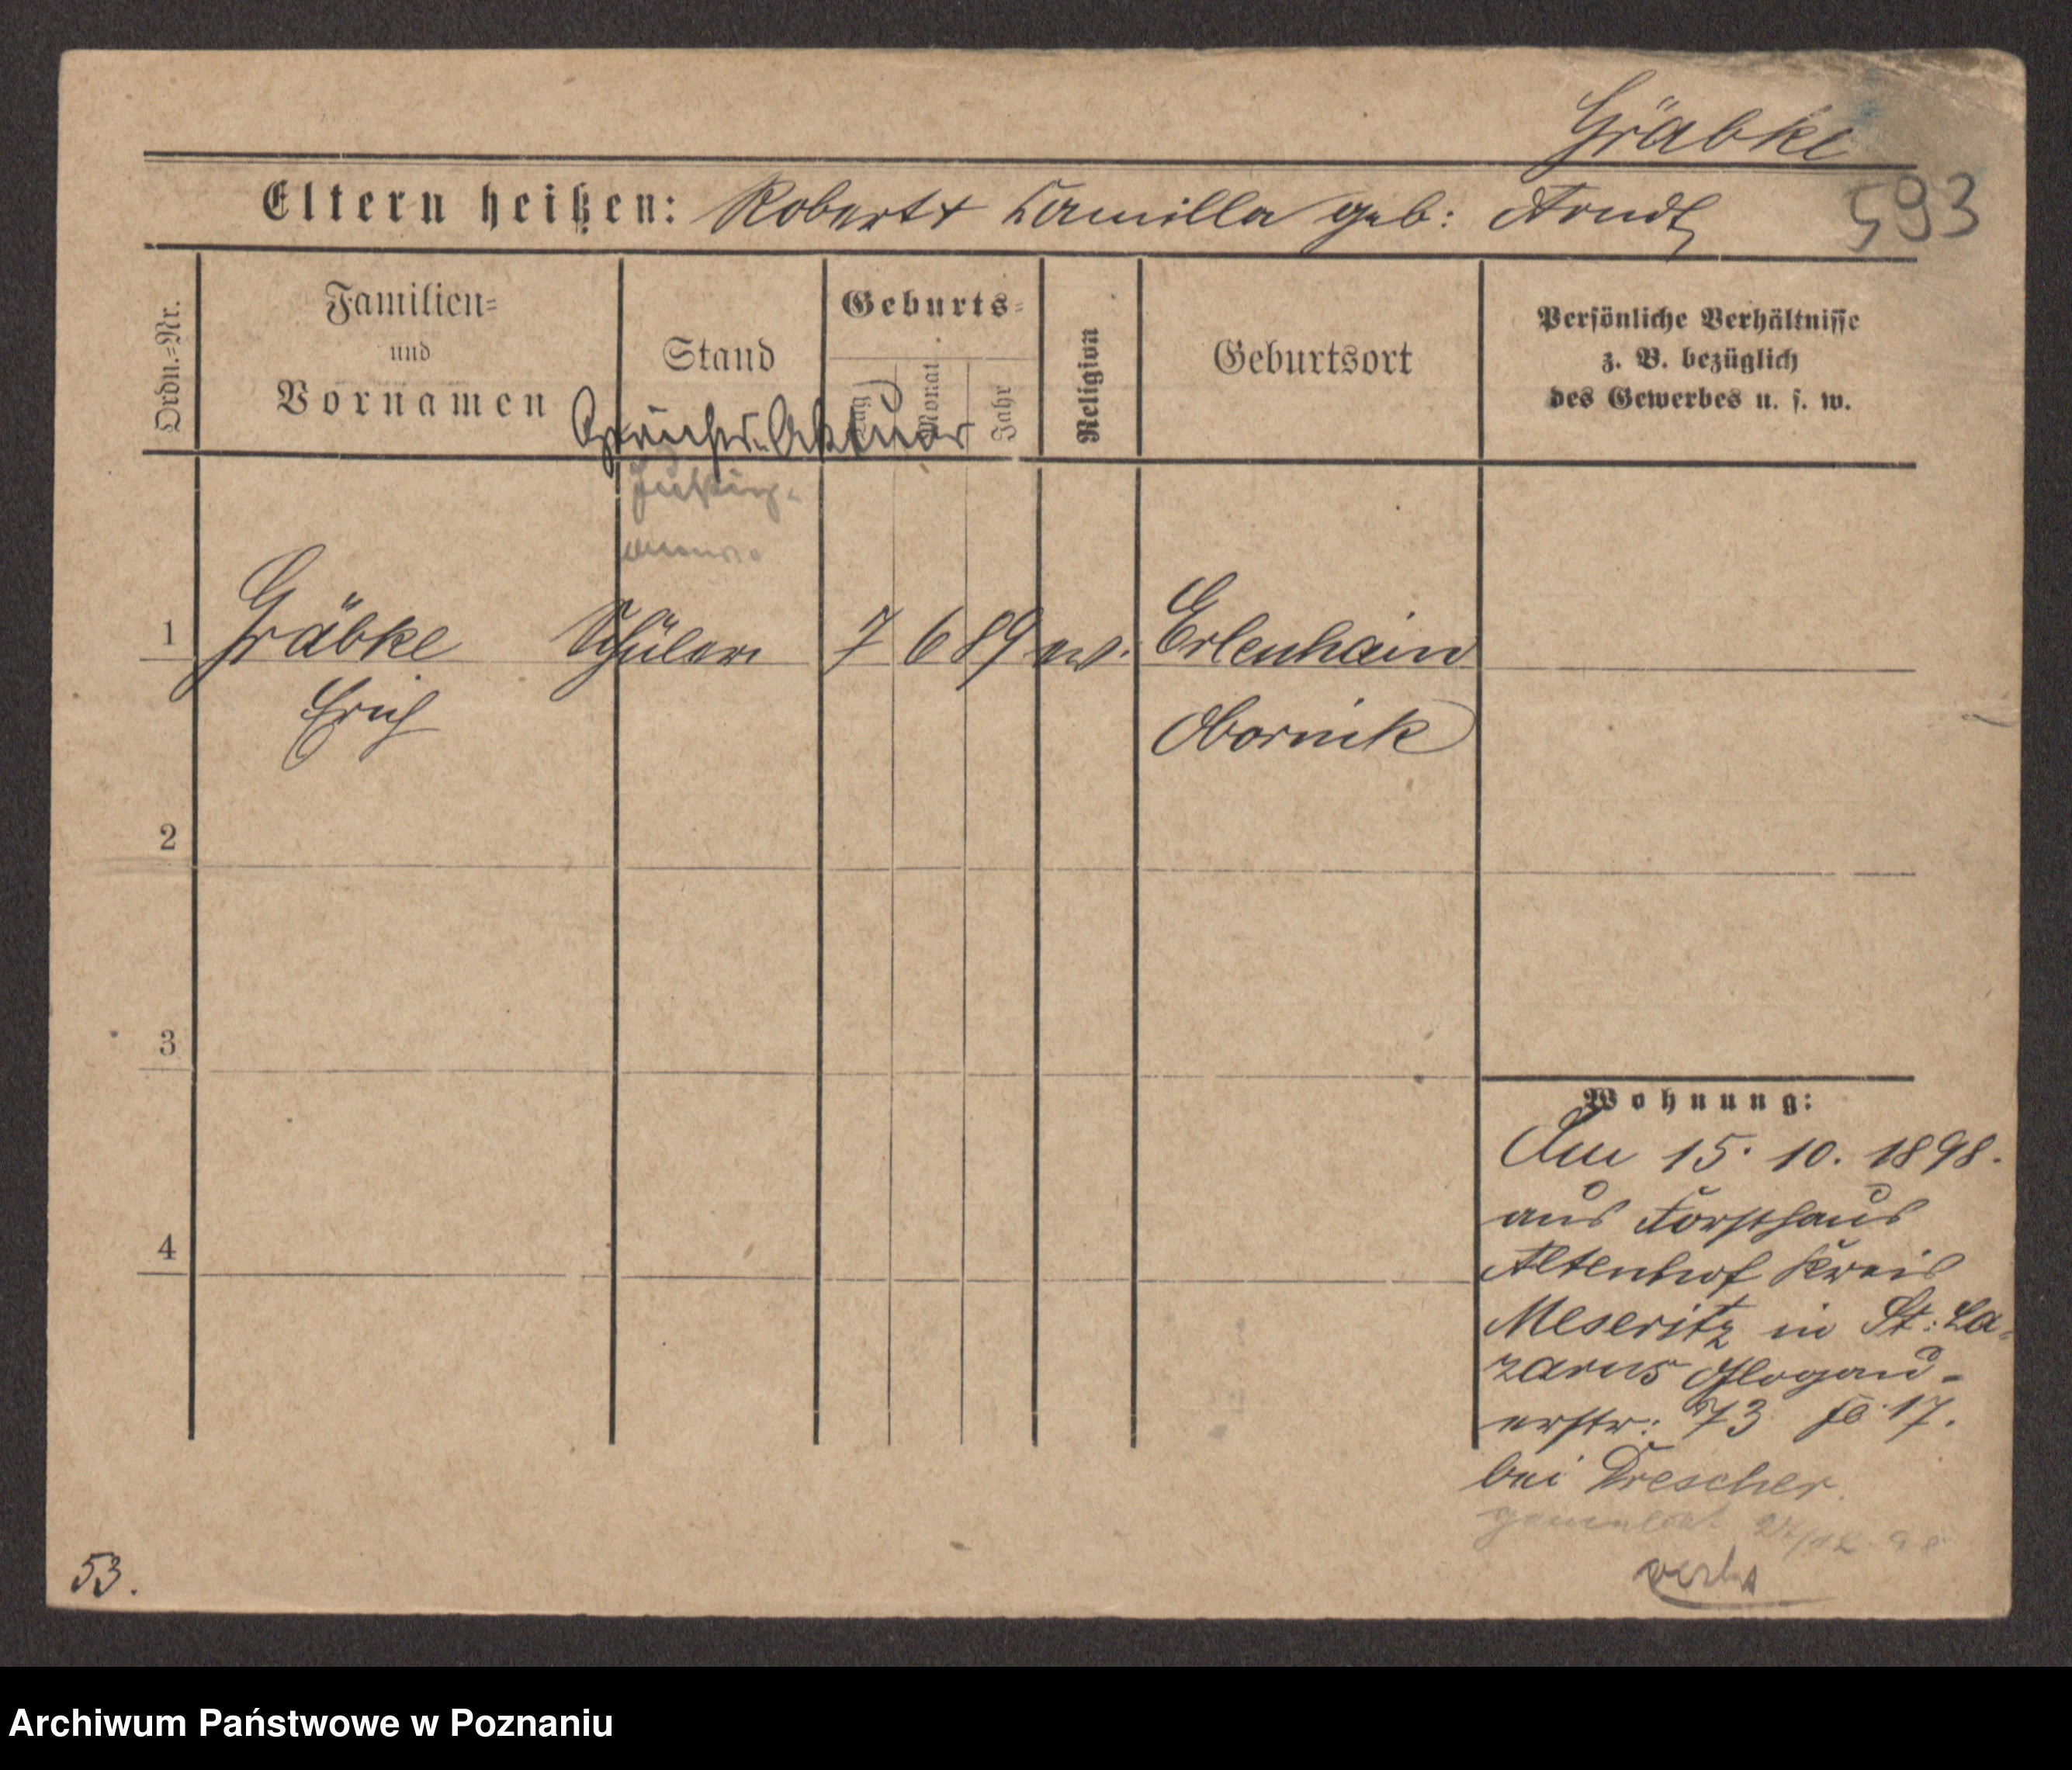 Gräbke
Eltern heißen: Robert + Camilla geb: Arndt
593
Ordn.=Nr.
Familien=
und
Vornamen
Stand
Geburts=
Tag
Monat
Jahr
Religion
Geburtsort
Persönliche Verhältnisse
z. B. bezüglich
des Gewerbes u. s. w.
Aktuar
1 Gräbke Schüler 7 6 89 ev. Erlenhain
Erich Obornik
2
3
4
Wohnung:
Am 15. 10. 1898.
aus Forsthaus
Altenhof Kreis
Meseritz in St: La-
zarus Glogau-
erstr: 73 17.
bei Drescher.
53.
Archiwum Państwowe w Poznaniu